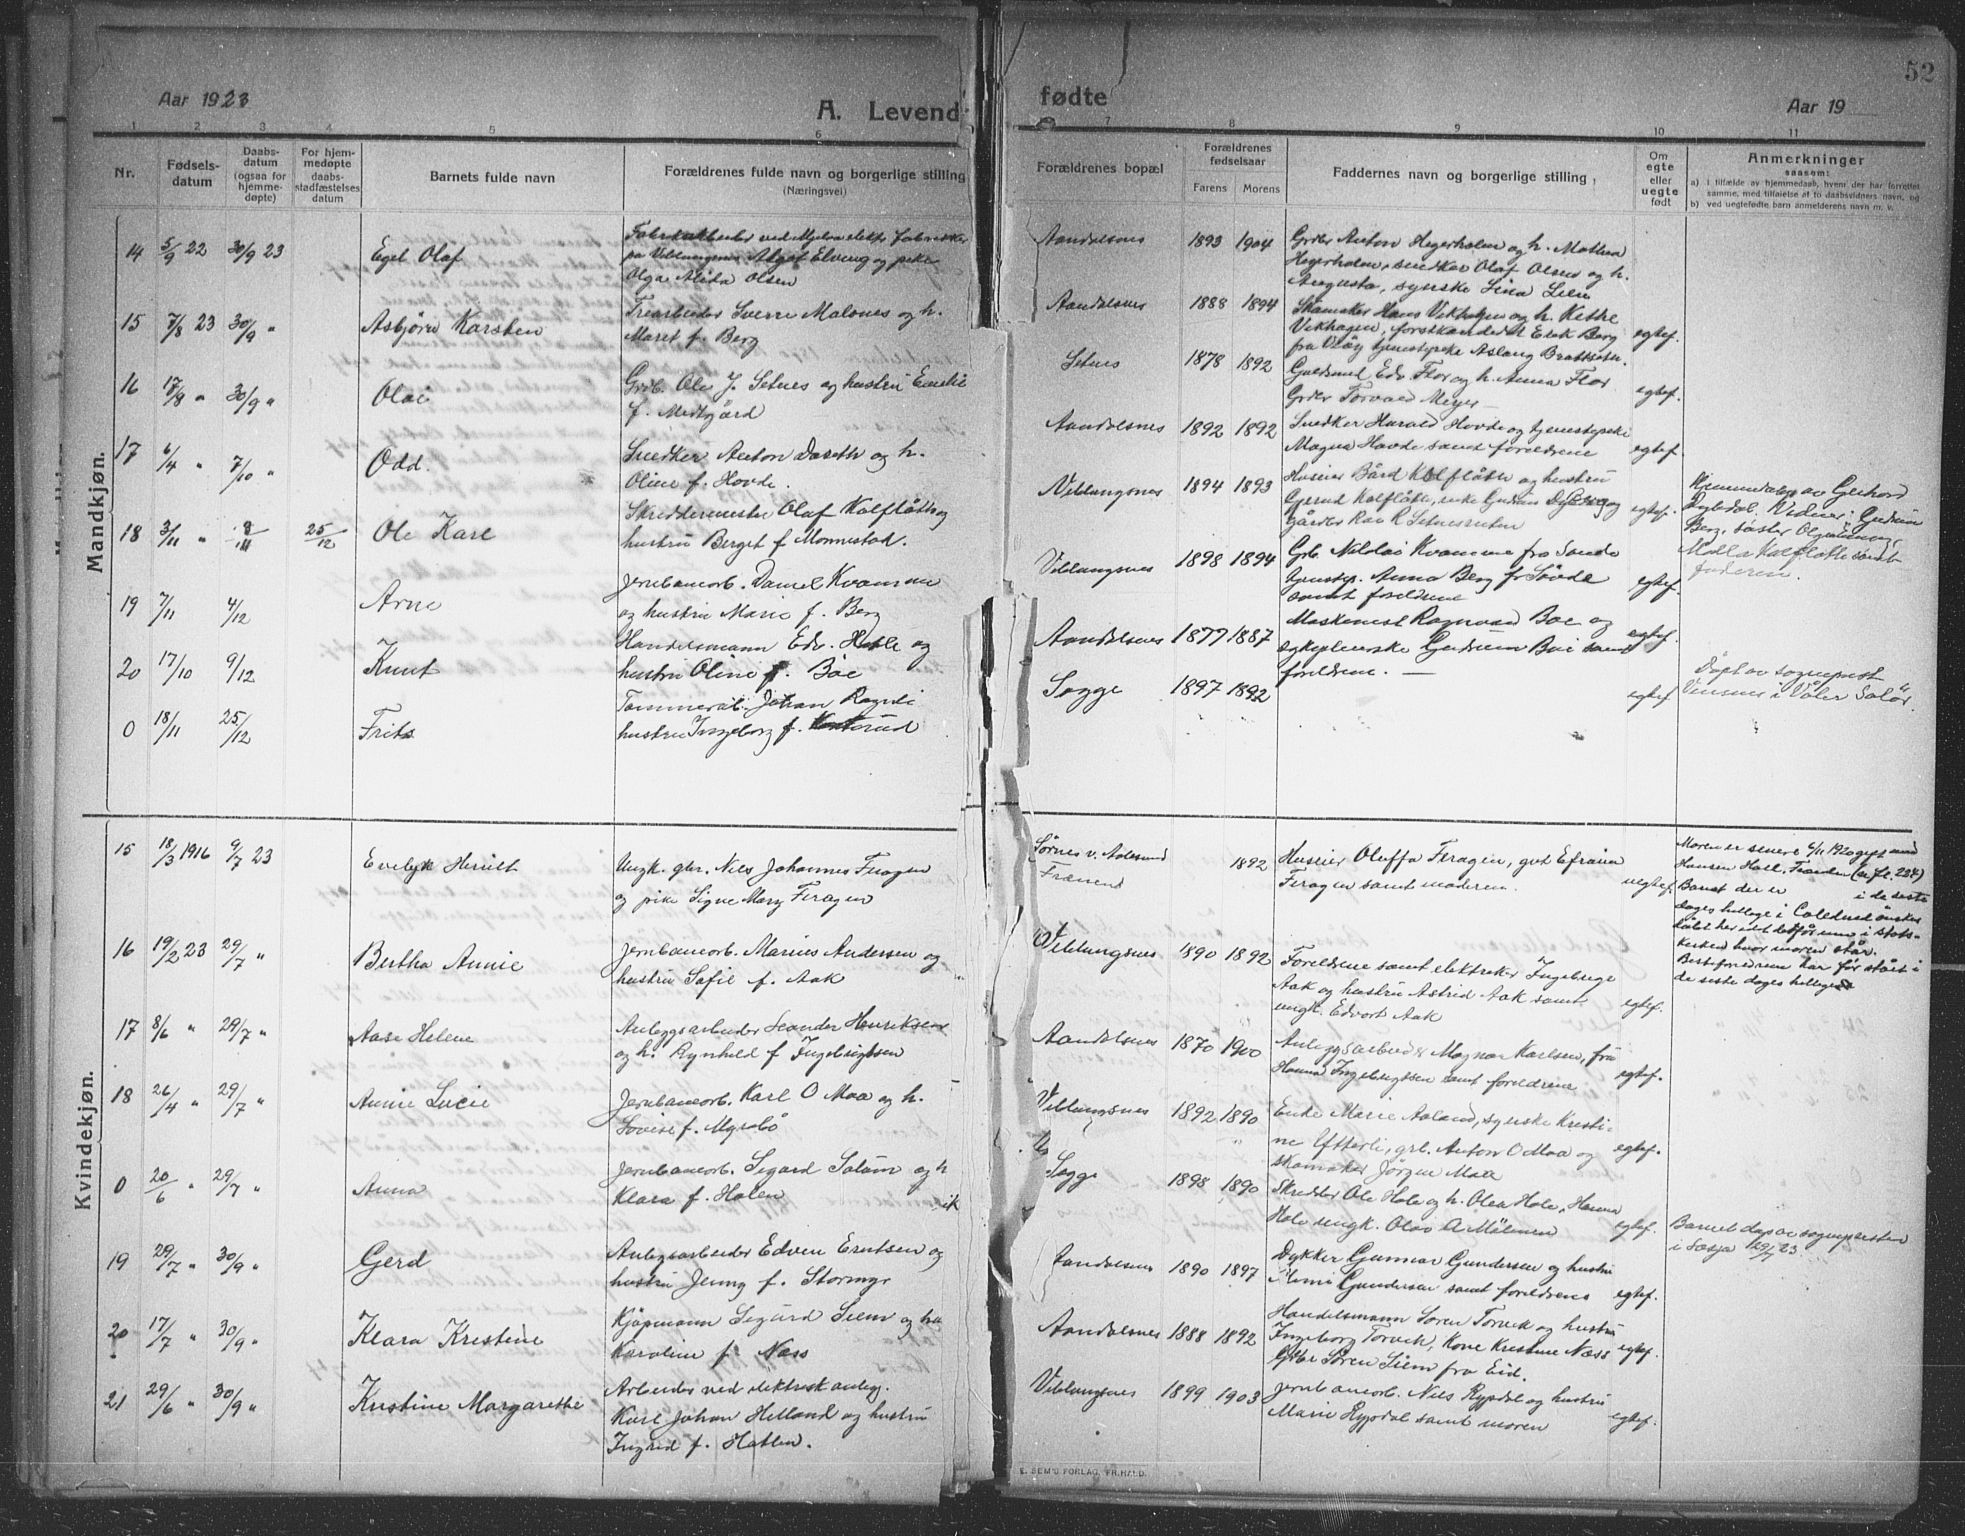 Aar 1923
A. Levend
fødte
Aar 19
52
1 2 3 4 5 6 7 8 9 10 11
Nr.
Fødsels-
datum
Daabs-
datum
(ogsaa for
hjemme-
døpte)
For hjem-
medøpte
daabs-
stadfæstelses
datum
Barnets fulde navn
Forældrenes fulde navn og borgerlige stilling
(Næringsvei)
Forældrenes bopæl
Forældrenes
fødselsaar
Farens Morens
Faddernes navn og borgerlige stilling
Om
egte
eller
uegte
født
Anmerkninger
saasom:
a) i tilfælde av hjemmedaab, hvem der har forrettet
samme, med tilføielse af to daabsvidners navn, og
b) ved uegtefødte barn anmelderens navn m. v.
Mandkjøn.
14 5/9 22 30/9 23 Egil Olaf
Fabrikarbeider ved Mjelva elektr. fabrikker
paa Veblungsnes Algot Elveng og pike
Olga Alida Olsen
Aandalsnes 1893 1904
Grder Anton Hegerholm og h. Mathea
Hegerholm, snedker Olaf Olsen og h.
Augusta, syerske Lina Lien
15 7/8 23 30/9 " Asbjörn Karsten
Træarbeider Sverre Malones og h.
Maret f. Berg
Aandalsnes 1888 1894
Skomaker Hans Vikhagen og h. Kethe
Vikhagen, forstkandidat Eiak Berg
fra tjenestepike Aslaug
egtef.
16 17/8 " 30/9 " Olai
Grdb. Ole J. Setnes og hustru Emilie
f. Medgård
Setnes 1878 1892
Guldsmed Edv. Flor og h. Anna Flor
Grder Torvald Meyer
egtef.
17 6/4 " 7/10 " Odd.
Snedker Anton Dareth og h.
Oline f. Hovde.
Aandalsnes 1892 1892
Snedker Harald Hovde og tjenestepike
Magna Hovde samt foreldrene
egtef.
18 3/11 " 8/11 25/12 Ole Karl
Skreddermester Olaf Kolflåth og
hustru Berget f. Monnestad.
Veblungsnes 1894 1893
Huseier Bård Kolflåth og hustru
Gjerud Kolflåth, enke Gudrun og
gårder R Setnes
egtef.
Hjemmedøpt av Gerhard
Dybdal. Vidner: Gudrun
Berg, søster Olga
Kolflåth samt
faderen.
19 7/11 4/12 Arne
Jernbanearb. Daniel Kvamme
og hustru Marie f. Berg
Veblungsnes 1898 1894
Grb. Nikolai Kvamme fra Sande
tjenestep. Anna Berg fr Sövde
samt foreldrene
egtef.
20 17/10 9/12 Knut
Handelsmann Edv. Hatle og
hustru Oline f. Böe
Aandalsnes 1877 1887
Maskinist Ragnvald Boe og
sykepleierske Gudrun Boe samt
foreldrene. —
egtef.
0 18/11 25/12 Frits
Tömmerarb. Johan
hustru Ingeborg f.
Sogge 1897 1892
egtef.
Döpt av sogneprest
i Våler Solør.
Kvindekjøn.
15 18/3 1916 9/7 23 Evelyn Herielt
Ungk. gbr. Nils Johannes
og pike Signe Mary Feragen
Sörnes v. Aalesund
Frænen
1892
Huseier Oluffa Feragen, gut Efraim
Feragen samt moderen.
uegtef.
Moren er senere 6/11 1920 gift med
Hansen Hall, (se fl. 224)
Barnet der er i de siste
dages hellige i
döbt her
kirken hvor moren står.
Besteforeldrene har før stået i
de siste dages hellige
16 19/2 23 29/7 " Bertha Annie
Jernbanearb. Marius Andersen og
hustru Sofie f. Aak
Veblungsnes 1890 1892
Foreldrene samt elektriker Ingeberg
Aak og hustru Astrid Aak samt
ungk. Edvart Aak
egtef.
17 8/6 " 29/7 " Aase Helene
Anleggsarbeider Leander Henriksen
og h. Rynhild f. Ingebrigtsen
Aandalsnes 1870 1900
Anleggsarbeider Magnar Karlsen, frk
Hanna Ingebrigtsen samt foreldrene
egtef.
18 26/4 " 29/7 " Annie Lucie
Jernbanearb. Karl O Moa og h.
Lovise f. Myrabö
Veblungsnes 1892 1890
Enke Marie Aaland, syerske Kristi-
ne Ytterli, grb. Anton O Moa og
skomaker Jörgen Moa
egtef.
0 20/6 " 29/7 " Anna
Jernbanearb. Sigurd Solum og h
Klara f. Holen
Sogge 1898 1890
Skredder Ole Hole og h. Olea Hole, Hanna
Hole ungk. Olav A Mölmen
egtef.
Barnet döpt av sognepresten
i Lesja 29/7 23.
19 29/7 " 30/9 " Gerd
Anlegsarbeider Edvin Erntsen og
hustru Jenny f. Stormyr
Aandalsnes 1890 1897
Dykker Gunnar Gundersen og hustru
Gundersen samt foreldrene
egtef.
20 17/7 " 30/9 " Klara Kristine
Kjöpmann Sigurd Siem og hu
Karoline f. Næss
Aandalsnes 1888 1892
Handelsmann Sören Torvik og hustru
Ingeborg Torvik, Kone Kristine Næss
Gbr Sören Siem fra Eid.
egtef.
21 29/6 " 30/9 " Kristine Margarethe
Arbeider ved elektrisk anleg.
Karl Johan Helland og hustru
Ingrid f. Hatlen.
Veblungsnes 1899 1903
Jernbanearb. Nils Rypdal og hustru
Marie Rypdal samt moren
egtef.
E. SEM'S FORLAG, FR.HALD.